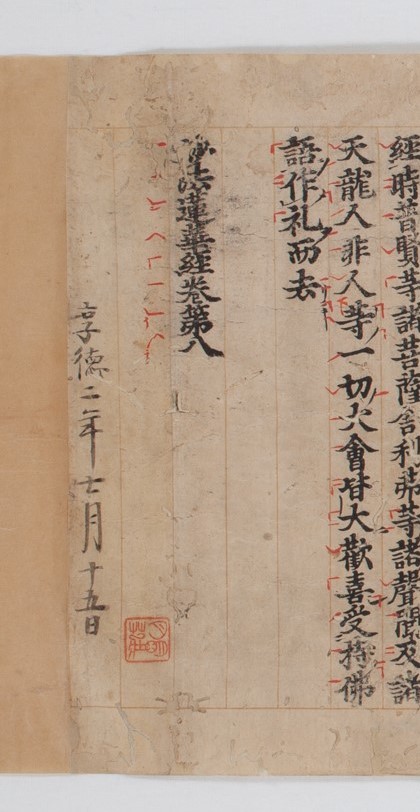 經時普賢等諸菩薩舍利弗等諸聲聞及諸
天龍人非人等一切大會皆大歡喜受持佛
語作礼而去
妙法蓮華經卷第八
享徳二年七月十五日